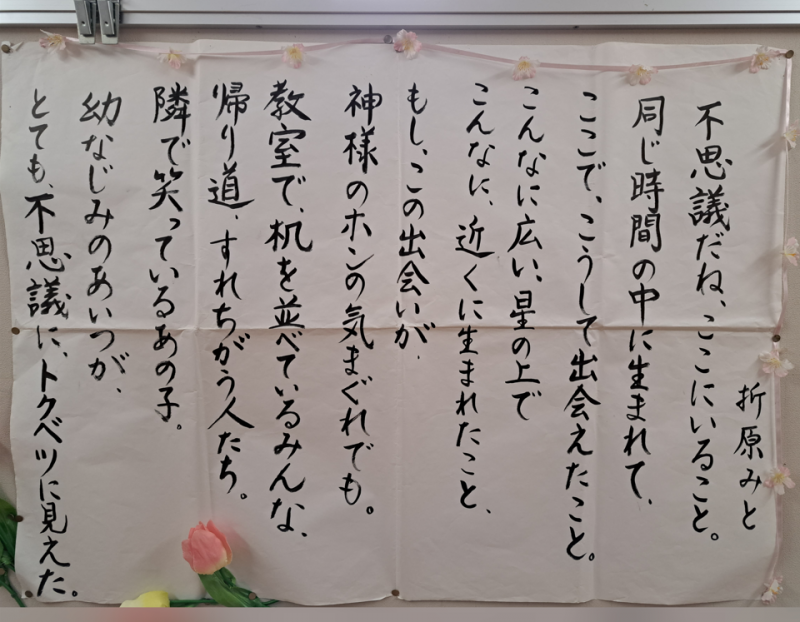 折原みと
不思議だね、ここにいること。
同じ時間の中に生まれて、
ここで、こうして出会えたこと。
こんなに広い、星の上で
こんなに、近くに生まれたこと、
もし、この出会いが、
神様のホンの気まぐれでも。
教室で、机を並べているみんな、
帰り道、すれちがう人たち。
隣で笑っているあの子。
幼なじみのあいつが、
とても、不思議に、トクベツに見えた。